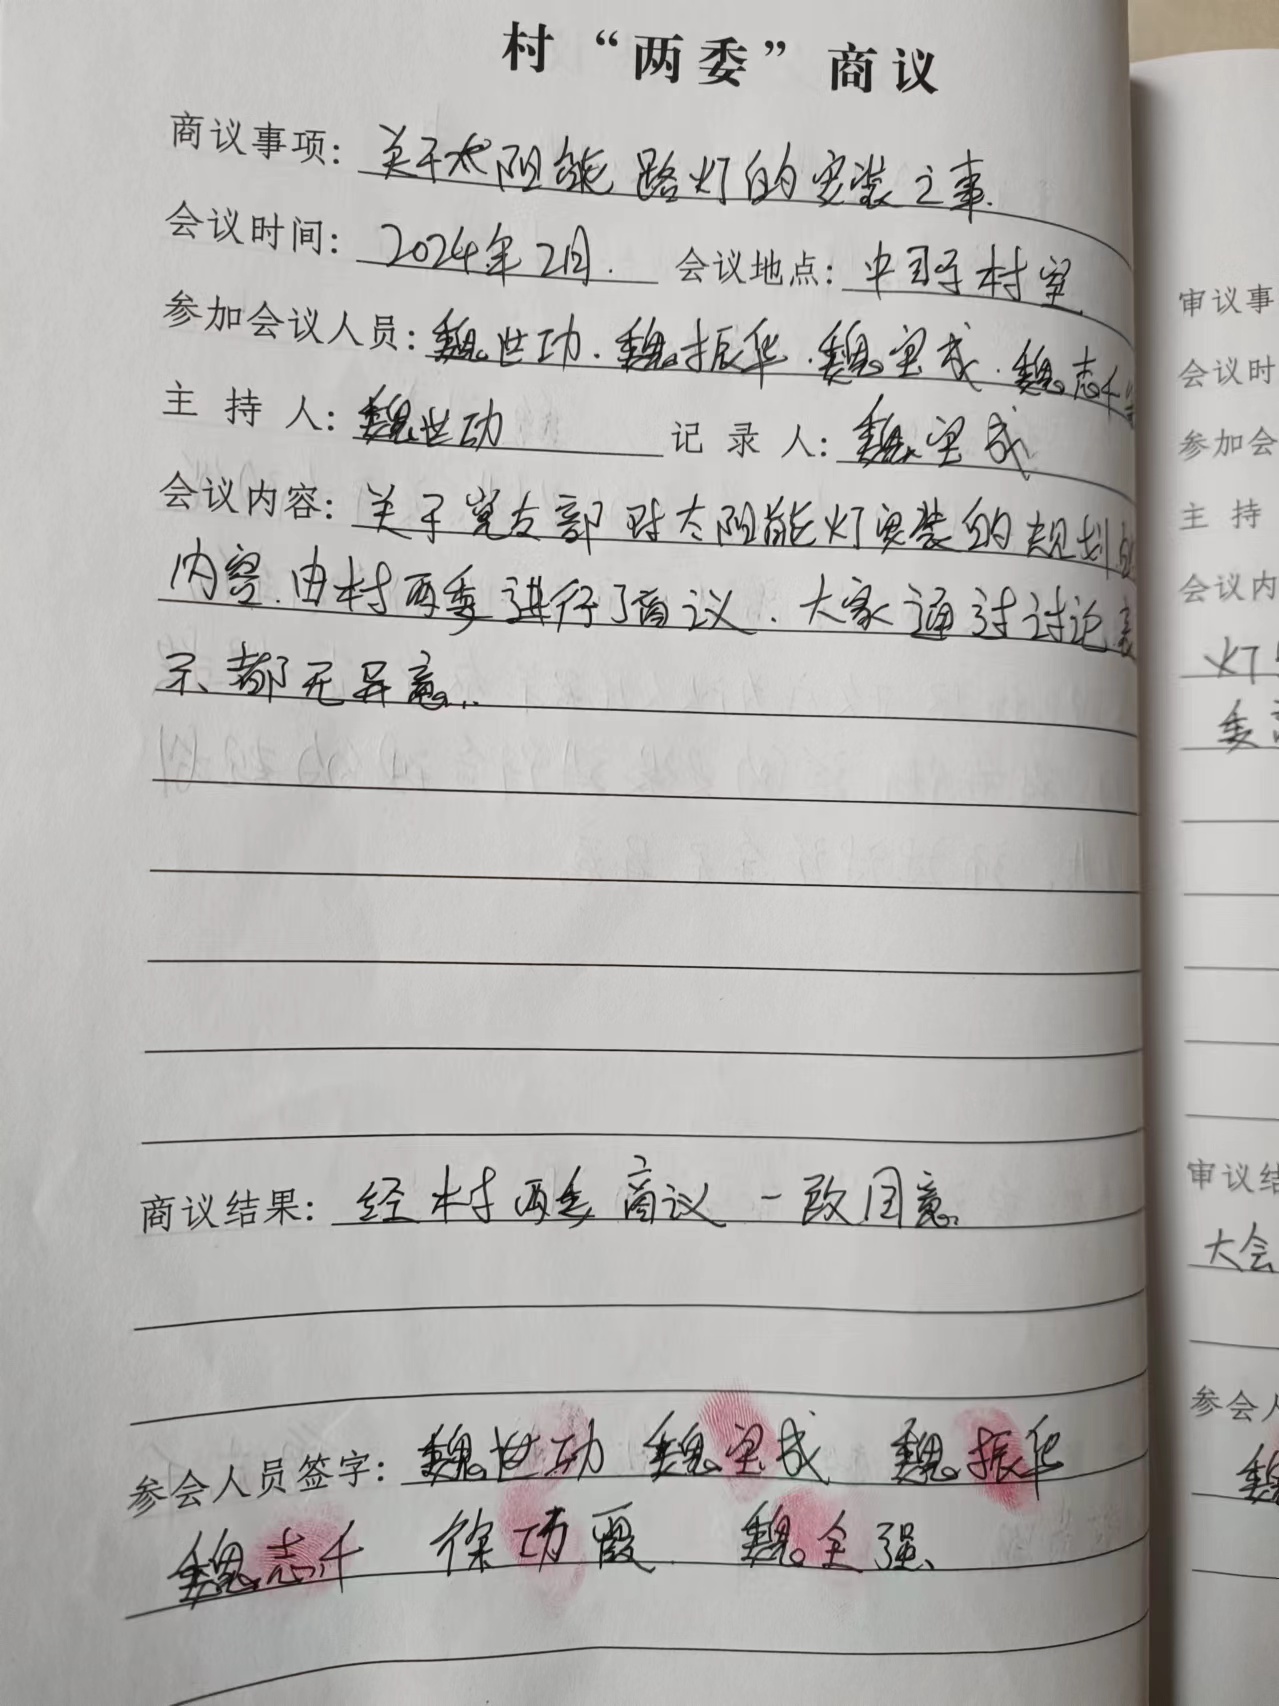 村“两委”商议
商议事项：关于太阳能路灯的安装之事.
会议时间：2024年2月. 会议地点：中司于村室
参加会议人员：魏世功.魏振华.魏宝成.魏志千等
主持人：魏世功 记录人：魏宝成
会议内容：关于党支部对太阳能灯安装的规划的
内容.由村两委进行了商议.大家通过讨论表
示都无异意.
商议结果：经村两委商议一致同意
参会人员签字：魏世功 魏宝成 魏振华
魏志千 徐功霞 魏全强
审议事
会议时
参加会
主持
会议内
灯
委
审议结
大会
参会人
魏